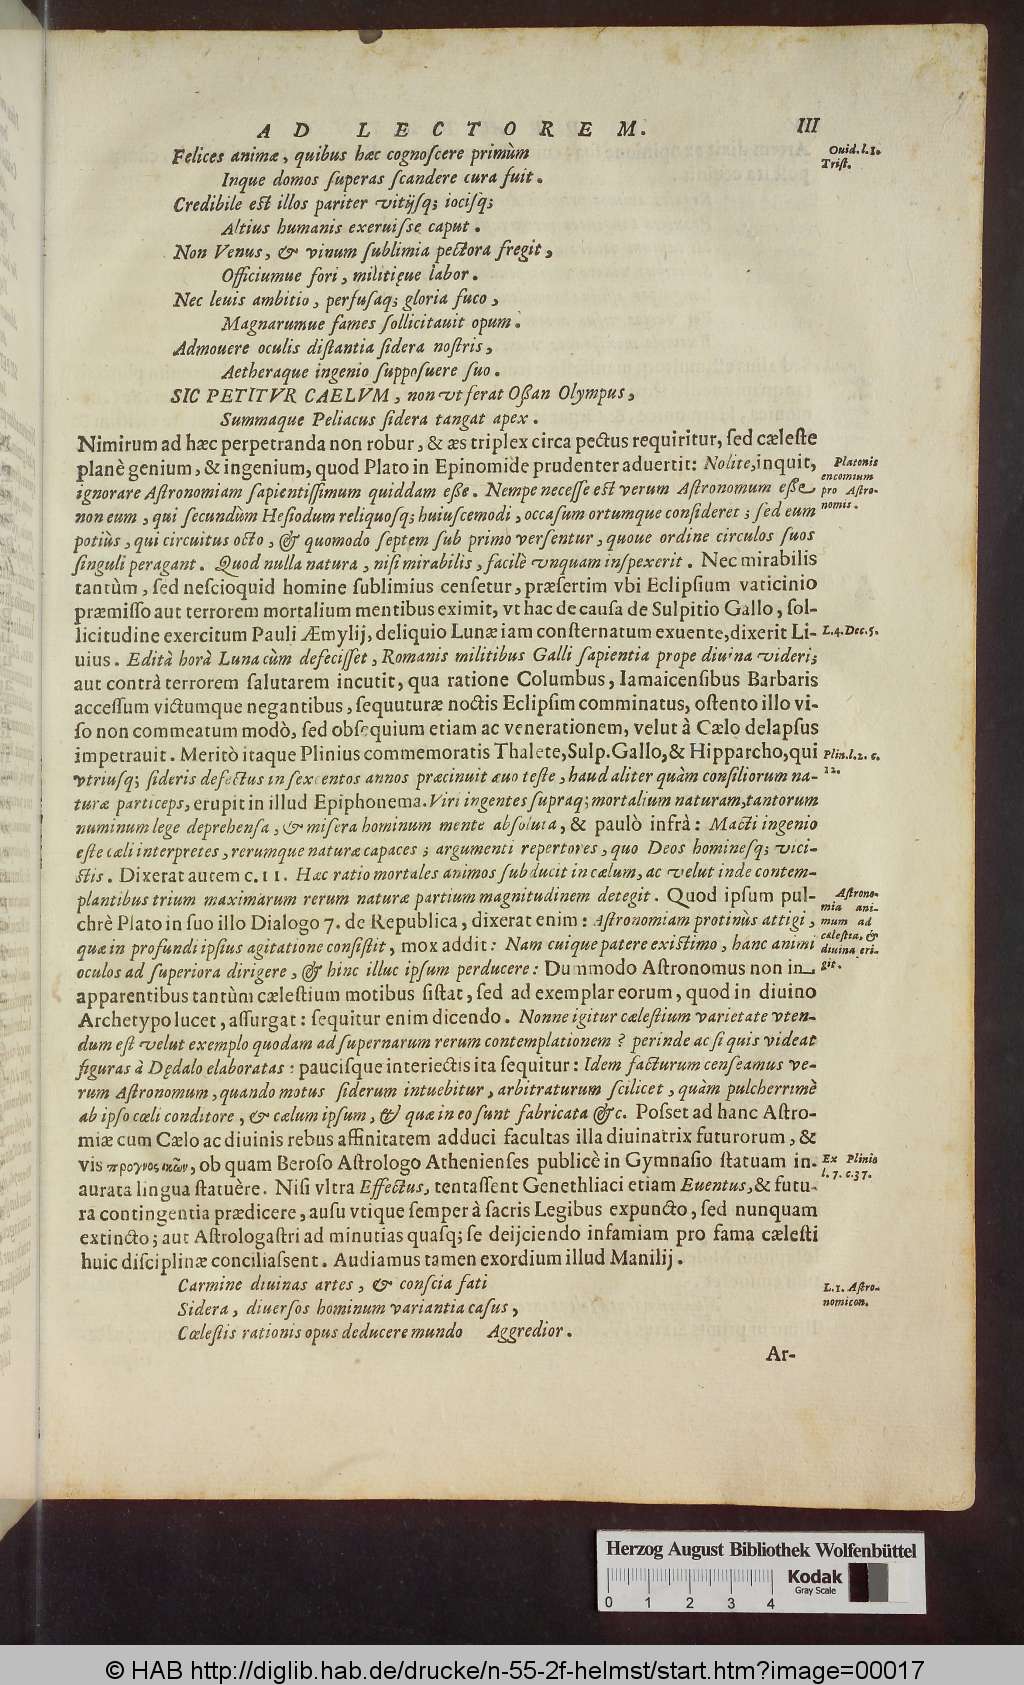 AD LECTOREM. III
Felices animæ, quibus hæc cognoſcere primùm
Ouid. l. 1.
Triſt.
Inque domos ſuperas ſcandere cura fuit.
Credibile eſt illos pariter vitijſq; iociſq;
Altius humanis exeruiſſe caput.
Non Venus, & vinum ſublimia pectora fregit,
Officiumue fori, militięue labor.
Nec leuis ambitio, perfuſaq; gloria fuco,
Magnarumue fames ſollicitauit opum.
Admouere oculis diſtantia ſidera noſtris,
Aetheraque ingenio ſuppoſuere ſuo.
SIC PETITVR CAELVM, non vt ferat Oſſan Olympus,
Summaque Peliacus ſidera tangat apex.
Nimirum ad hæc perpetranda non robur, & æs triplex circa pectus requiritur, ſed cæleſte
planè genium, & ingenium, quod Plato in Epinomide prudenter aduertit: Nolite, inquit,
ignorare Aſtronomiam ſapientiſſimum quiddam eſſe. Nempe neceſſe eſt verum Aſtronomum eſſe
non eum, qui ſecundùm Heſiodum reliquoſq; huiuſcemodi, occaſum ortumque conſideret; ſed eum
Platonis
encomium
pro Aſtro-
nomis.
potiùs, qui circuitus octo, & quomodo ſeptem ſub primo verſentur, quoue ordine circulos ſuos
ſinguli peragant. Quod nulla natura, niſi mirabilis, facilè vnquam inſpexerit. Nec mirabilis
tantùm, ſed neſcioquid homine ſublimius cenſetur, præſertim vbi Eclipſium vaticinio
præmiſſo aut terrorem mortalium mentibus eximit, vt hac de cauſa de Sulpitio Gallo, ſol-
licitudine exercitum Pauli Æmylij, deliquio Lunæ iam conſternatum exuente, dixerit Li-
L. 4. Dec. 5.
uius. Edità horà Luna cùm defeciſſet, Romanis militibus Galli ſapientia prope diuina videri;
aut contrà terrorem ſalutarem incutit, qua ratione Columbus, Iamaicenſibus Barbaris
acceſſum victumque negantibus, ſequuturæ noctis Eclipſim comminatus, oſtento illo vi-
ſo non commeatum modò, ſed obſequium etiam ac venerationem, velut à Cælo delapſus
impetrauit. Meritò itaque Plinius commemoratis Thalete, Sulp. Gallo, & Hipparcho, qui
Plin. l. 2. c.
12.
vtriuſq; ſideris defectus in ſexcentos annos præcinuit æuo teſte, haud aliter quàm conſiliorum na-
turæ particeps, erupit in illud Epiphonema. Viri ingentes ſupraq; mortalium naturam, tantorum
numinum lege deprehenſa, & miſera hominum mente abſoluta, & paulò infrà: Macti ingenio
eſte cæli interpretes, rerumque naturæ capaces; argumenti repertores, quo Deos hominesq; vici-
ſtis. Dixerat autem c. 11. Hæc ratio mortales animos ſubducit in cælum, ac velut inde contem-
plantibus trium maximarum rerum naturæ partium magnitudinem detegit. Quod ipſum pul-
chrè Plato in ſuo illo Dialogo 7. de Republica, dixerat enim: Aſtronomiam protinùs attigi,
quæ in profundi ipſius agitatione conſiſtit, mox addit: Nam cuique patere exiſtimo, hanc animi
oculos ad ſuperiora dirigere, & hinc illuc ipſum perducere: Dummodo Aſtronomus non in
Aſtrono-
mia ani-
mum ad
cæleſtia, &
diuina eri-
git.
apparentibus tantùm cæleſtium motibus ſiſtat, ſed ad exemplar eorum, quod in diuino
Archetypo lucet, aſſurgat: ſequitur enim dicendo. Nonne igitur cæleſtium varietate vten-
dum eſt velut exemplo quodam ad ſupernarum rerum contemplationem? perinde ac ſi quis videat
figuras à Dędalo elaboratas: pauciſque interiectis ita ſequitur: Idem facturum cenſeamus ve-
rum Aſtronomum, quando motus ſiderum intuebitur, arbitraturum ſcilicet, quàm pulcherrimè
ab ipſo cæli conditore, & cælum ipſum, & quæ in eo ſunt fabricata &c. Poſſet ad hanc Aſtro-
miæ cum Cælo ac diuinis rebus affinitatem adduci facultas illa diuinatrix futurorum, &
vis προγνοςικῶν, ob quam Beroſo Aſtrologo Athenienſes publicè in Gymnaſio ſtatuam in-
Ex Plinio
l. 7. c. 37.
aurata lingua ſtatuère. Niſi vltra Effectus, tentaſſent Genethliaci etiam Euentus, & futu-
ra contingentia prædicere, auſu vtique ſemper à ſacris Legibus expuncto, ſed nunquam
extincto; aut Aſtrologaſtri ad minutias quaſq; ſe deijciendo infamiam pro fama cæleſti
huic diſciplinæ conciliaſſent. Audiamus tamen exordium illud Manilij.
Carmine diuinas artes, & conſcia fati
L. 1. Aſtro-
nomicon.
Sidera, diuerſos hominum variantia caſus,
Cæleſtis rationis opus deducere mundo Aggredior.
Ar-
Herzog August Bibliothek Wolfenbüttel
Kodak
Gray Scale
0 1 2 3 4
© HAB http://diglib.hab.de/drucke/n-55-2f-helmst/start.htm?image=00017